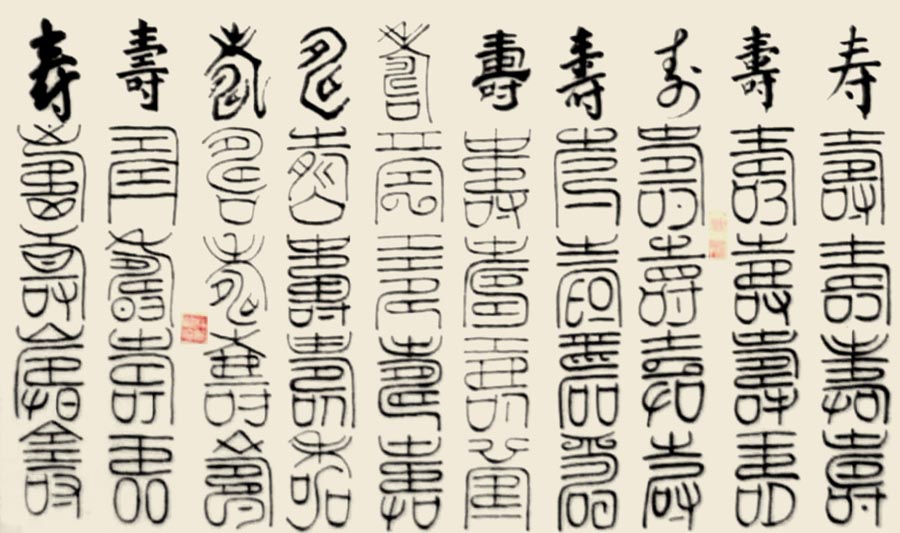 寿壽壽壽壽
壽壽壽壽壽
寿壽壽壽壽
壽壽壽壽壽
壽壽壽壽壽
壽壽壽壽壽
壽壽壽壽壽
壽壽壽壽壽
壽壽壽壽壽
寿壽壽壽壽